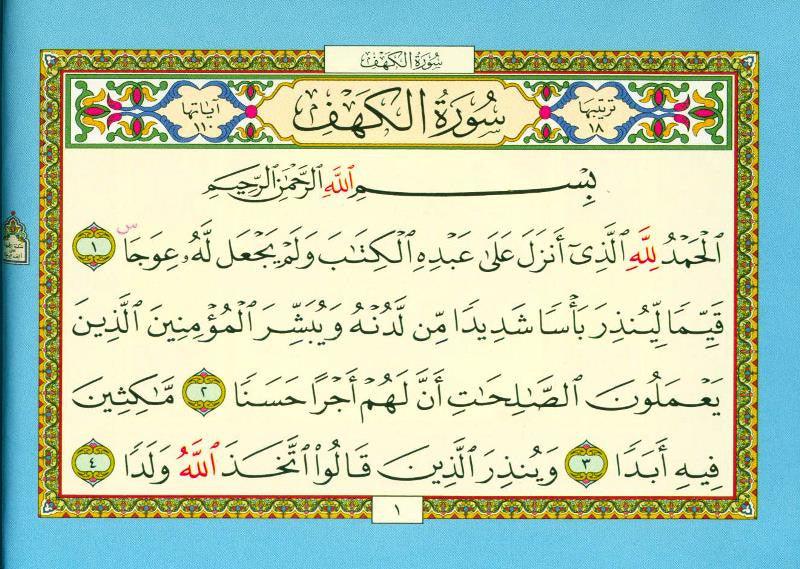 سُورَةُ الكَهْفِ
تَرتيبُها ١٨
سُورَةُ الكَهْفِ
آيَاتُها ١١٠
بِسْمِ ٱللَّهِ ٱلرَّحْمَٰنِ ٱلرَّحِيمِ
ٱلْحَمْدُ لِلَّهِ ٱلَّذِىٓ أَنزَلَ عَلَىٰ عَبْدِهِ ٱلْكِتَٰبَ وَلَمْ يَجْعَل لَّهُۥ عِوَجَاۜ ١
قَيِّمًا لِّيُنذِرَ بَأْسًا شَدِيدًا مِّن لَّدُنْهُ وَيُبَشِّرَ ٱلْمُؤْمِنِينَ ٱلَّذِينَ
يَعْمَلُونَ ٱلصَّٰلِحَٰتِ أَنَّ لَهُمْ أَجْرًا حَسَنًا ٢ مَّٰكِثِينَ
فِيهِ أَبَدًا ٣ وَيُنذِرَ ٱلَّذِينَ قَالُوا۟ ٱتَّخَذَ ٱللَّهُ وَلَدًا ٤
١